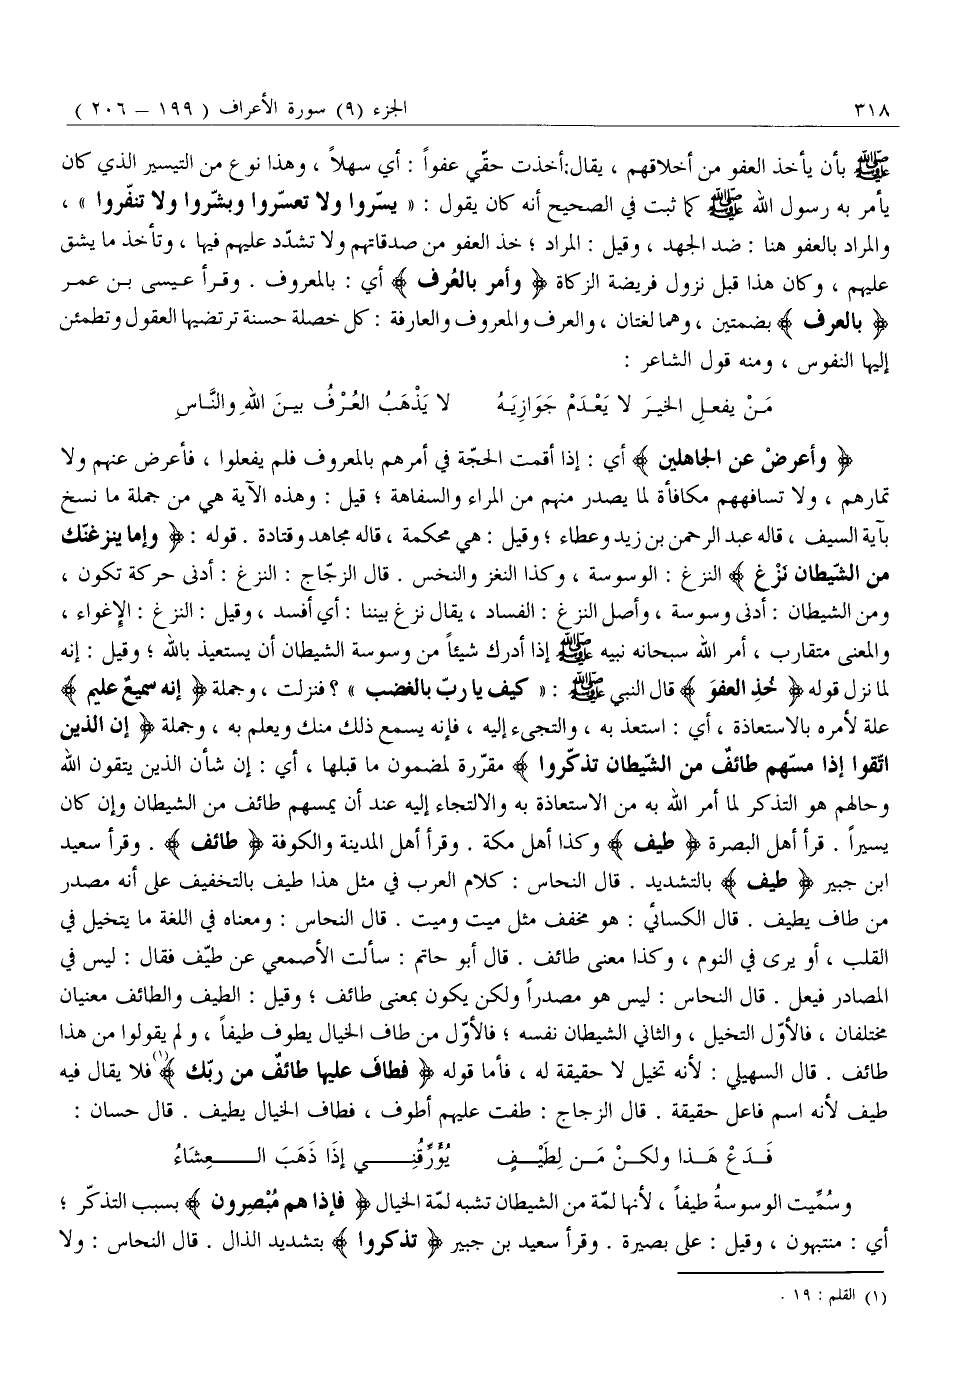 ٣١٨ الجزء (٩) سورة الأعراف ( ١٩٩ – ٢٠٦ )
ﷺ بأن يأخذ العفو من أخلاقهم ، يقال:أخذت حقّي عفواً : أي سهلاً ، وهذا نوع من التيسير الذي كان
يأمر به رسول الله ﷺ كما ثبت في الصحيح أنه كان يقول : « يسّروا ولا تعسّروا وبشّروا ولا تنفّروا » ،
والمراد بالعفو هنا : ضد الجهد ، وقيل : المراد ؛ خذ العفو من صدقاتهم ولا تشدّد عليهم فيها ، وتأخذ ما يشق
عليهم ، وكان هذا قبل نزول فريضة الزكاة ﴿ وأمر بالعُرف ﴾ أي : بالمعروف . وقرأ عيسى بن عمر
﴿ بالعرف ﴾ بضمتين ، وهما لغتان ، والعرف والمعروف والعارفة : كل خصلة حسنة ترتضيها العقول وتطمئن
إليها النفوس ، ومنه قول الشاعر :
مَنْ يفعلِ الخيرَ لا يَعْدَمْ جَوَازِيَهُ لا يَذْهَبُ العُرْفُ بينَ اللهِ والنَّاسِ
﴿ وأعرضْ عن الجاهلين ﴾ أي : إذا أقمت الحجّة في أمرهم بالمعروف فلم يفعلوا ، فأعرض عنهم ولا
تمارهم ، ولا تسافههم مكافأة لما يصدر منهم من المراء والسفاهة ؛ قيل : وهذه الآية هي من جملة ما نسخ
بآية السيف ، قاله عبد الرحمن بن زيد وعطاء ؛ وقيل : هي محكمة ، قاله مجاهد وقتادة . قوله : ﴿ وإما ينزغنّك
من الشّيطان نَزْغ ﴾ النزغ : الوسوسة ، وكذا النغز والنخس . قال الزجّاج : النزغ : أدنى حركة تكون ،
ومن الشيطان : أدنى وسوسة ، وأصل النزغ : الفساد ، يقال نزغ بيننا : أي أفسد ، وقيل : النزغ : الإغواء ،
والمعنى متقارب ، أمر الله سبحانه نبيه ﷺ إذا أدرك شيئاً من وسوسة الشيطان أن يستعيذ بالله ؛ وقيل : إنه
لما نزل قوله ﴿ خُذِ العفوَ ﴾ قال النبي ﷺ : « كيف يا ربّ بالغضب » ؟ فنزلت ، وجملة ﴿ إنه سميعٌ عليم ﴾
علة لأمره بالاستعاذة ، أي : استعذ به ، والتجىء إليه ، فإنه يسمع ذلك منك ويعلم به ، وجملة ﴿ إن الذين
اتّقوا إذا مسّهم طائفٌ من الشّيطان تذكّروا ﴾ مقرّرة لمضمون ما قبلها ، أي : إن شأن الذين يتقون الله
وحالهم هو التذكر لما أمر الله به من الاستعاذة به والالتجاء إليه عند أن يمسهم طائف من الشيطان وإن كان
يسيراً . قرأ أهل البصرة ﴿ طيف ﴾ وكذا أهل مكة . وقرأ أهل المدينة والكوفة ﴿ طائف ﴾ . وقرأ سعيد
ابن جبير ﴿ طيف ﴾ بالتشديد . قال النحاس : كلام العرب في مثل هذا طيف بالتخفيف على أنه مصدر
من طاف يطيف . قال الكسائي : هو مخفف مثل ميت وميت . قال النحاس : ومعناه في اللغة ما يتخيل في
القلب ، أو يرى في النوم ، وكذا معنى طائف . قال أبو حاتم : سألت الأصمعي عن طيّف فقال : ليس في
المصادر فيعل . قال النحاس : ليس هو مصدراً ولكن يكون بمعنى طائف ؛ وقيل : الطيف والطائف معنيان
مختلفان ، فالأوّل التخيل ، والثاني الشيطان نفسه ؛ فالأوّل من طاف الخيال يطوف طيفاً ، ولم يقولوا من هذا
طائف . قال السهيلي : لأنه تخيل لا حقيقة له ، فأما قوله ﴿ فطافَ عليها طائفٌ من ربّك ﴾(١) فلا يقال فيه
طيف لأنه اسم فاعل حقيقة . قال الزجاج : طفت عليهم أطوف ، فطاف الخيال يطيف . قال حسان :
فَدَعْ هَذا ولكنْ مَن لِطَيْفٍ يُؤَرِّقُنِي إذَا ذَهَبَ العِشَاءُ
وسُمِّيت الوسوسةُ طيفاً ، لأنها لمّة من الشيطان تشبه لمّة الخيال ﴿ فإذا هم مُبْصِرون ﴾ بسبب التذكّر ؛
أي : منتبهون ، وقيل : على بصيرة . وقرأ سعيد بن جبير ﴿ تذكروا ﴾ بتشديد الذال . قال النحاس : ولا
(١) القلم : ١٩ .